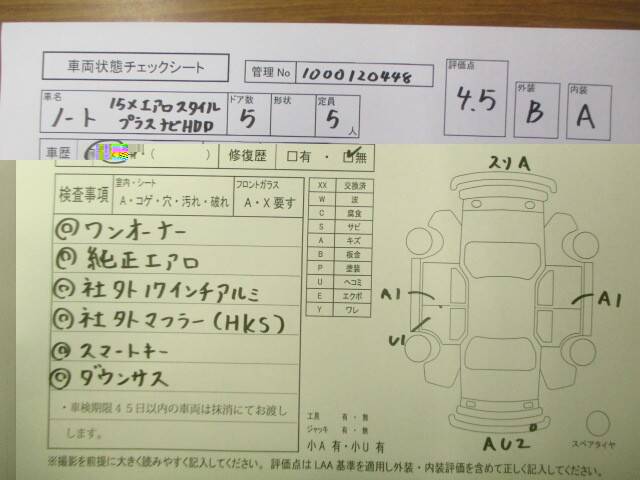 車両状態チェックシート
管理No 1000120448
評価点 4.5
外装 B
内装 A
車名 ノート 15Mエアロスタイル プラスナビHDD
ドア数 5
形状
定員 5人
車歴 ・( )
修復歴 □有・☑無
検査事項
室内・シート A・コゲ・穴・汚れ・破れ
フロントガラス A・X要す
◎ワンオーナー
◎純正エアロ
◎社外17インチアルミ
◎社外マフラー(HKS)
◎スマートキー
◎ダウンサス
・車検期限45日以内の車両は抹消にてお渡し
します。
XX 交換済
W 波
C 腐食
S サビ
A キズ
B 板金
P 塗装
U ヘコミ
E エクボ
Y ワレ
工具 有・無
ジャッキ 有・無
小A 有・小U 有
スリA
A1
A1
U1
AU2
スペアタイヤ
※撮影を前提に大きく読みやすく記入してください。評価点はLAA基準を適用し外装・内装評価を含めて正しく記入してください。